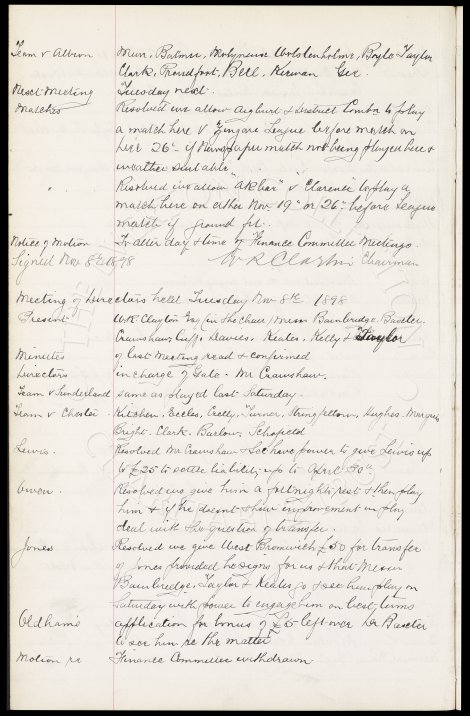 Team v Albion Muir, Balmer, Molyneux Wolstenholme, Boyle Taylor
Clark, Proudfoot, Bell, Kirwan Gee
Next Meeting Tuesday next.
Matches Resolved we allow Aigburth & District Combn to play
a match here v Zingari League before match on
Dec 26th if Newspaper match not being played here &
weather suitable
" Resolved we allow "v Clarence to play a
match here on either Nov 19th or 26th before League
match if ground fit.
Notice of Motion To alter day & time of Finance Committee Meetings.
Signed Nov 8th 1898 W R Clayton Chairman
Meeting of Directors held Tuesday Nov 8th 1898
Present W.R. Clayton Esq (in the Chair) Messrs Bainbridge, Baxter
Crawshaw, Cuff, Davies, Keates, Kelly & Taylor
Minutes of last Meeting read & confirmed
Directors in charge of Gate - Mr Crawshaw.
Team v Sunderland same as played last Saturday.
Team v Chester Kitchen, Eccles, Crelly, Turner, Stringfellow, Hughes, Marquis
Bright. Clark. Barlow, Schofield
Lewis. Resolved Mr Crawshaw & Sec have power to give Lewis up
to £25 to settle liability up to April 30th
Owen. Resolved we give him a fortnights rest & then play
him & if he doesnt show improvement in play
deal with the question of transfer.
Jones Resolved we give West Bromwich £50 for transfer
of Jones provided he signs for us & that Messrs
Bainbridge, Taylor & Keates go & see him play on
Saturday with power to engage him on best terms
Oldham's application for bonus of £5 left over Dr Baxter
to see him re the matter
Motion re Finance Committee withdrawn